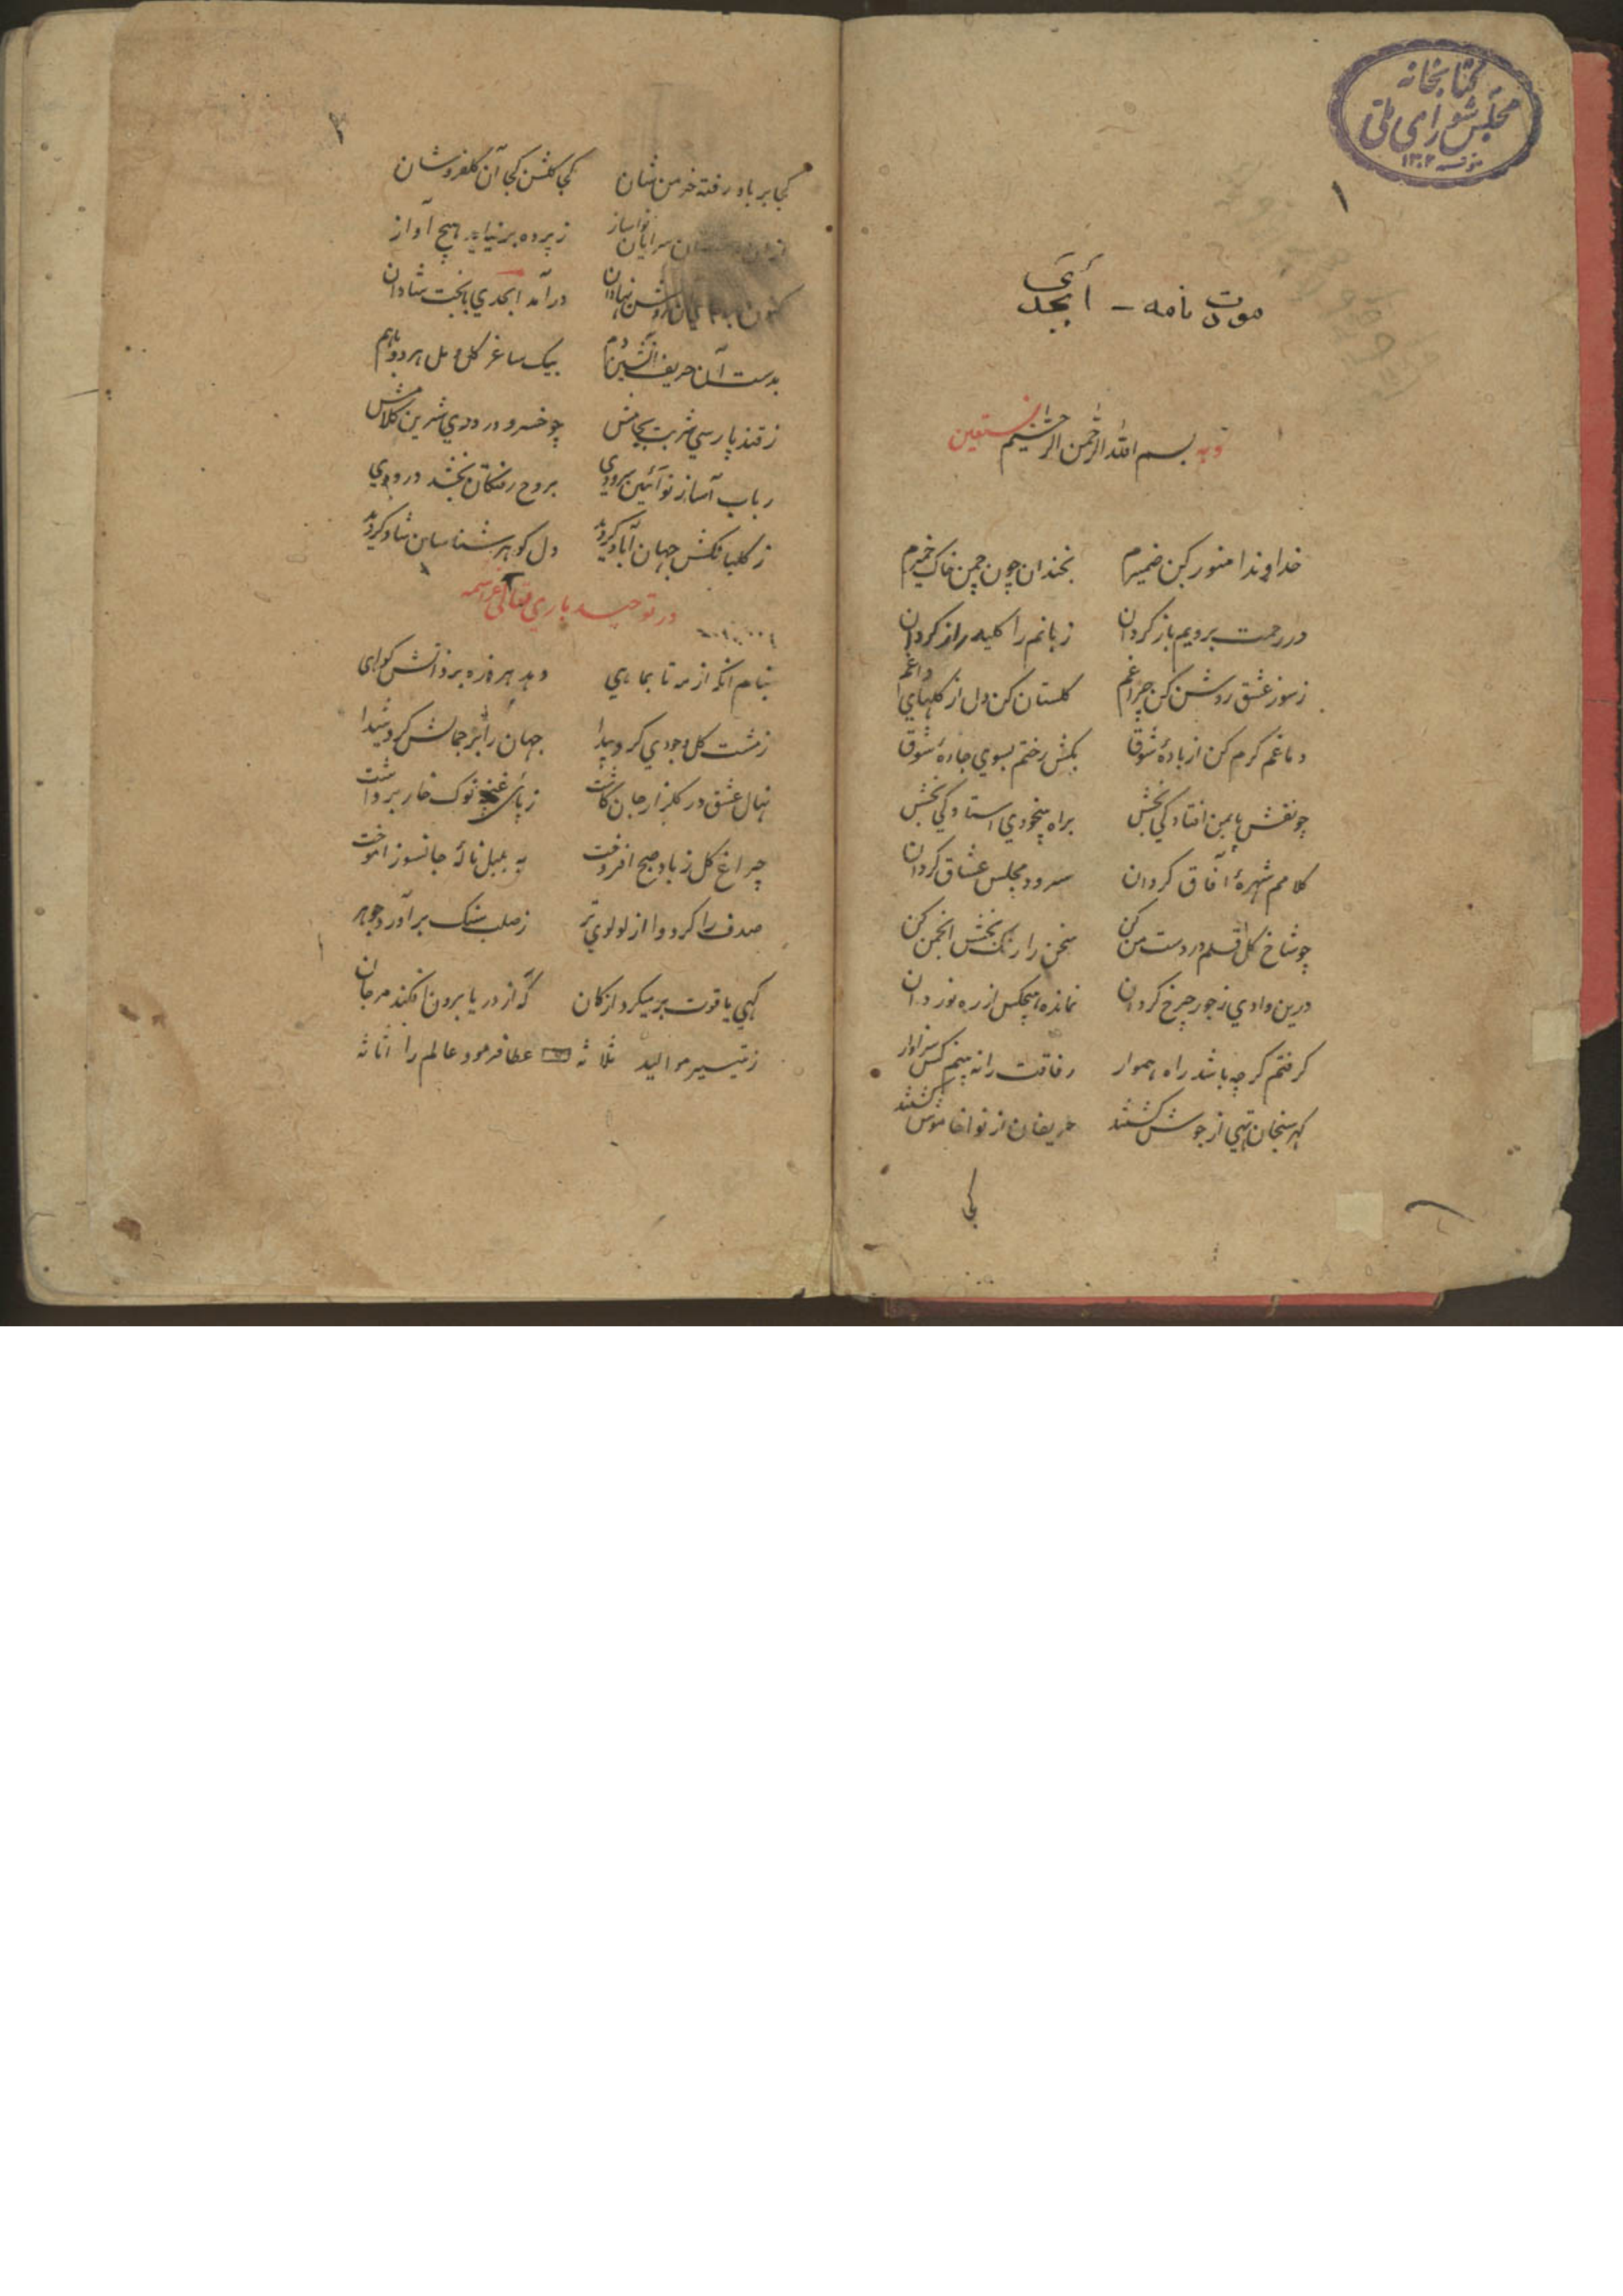 کتابخانه
مجلس شورای ملی
۱۳۰۲
۱
مودت نامه - ابجدی
وبه نستعین
بسم الله الرحمن الرحیم
خداوندا منور کن ضمیرم بخندان چون چمن خاک خمیرم
در رحمت برویم باز کردان زبانم را کلید راز کردان
ز سوز عشق روشن کن چراغم کلستان کن دل از کلهای داغم
دماغم کرم کن از بادهٔ شوق بکش رختم بسوي جادهٔ شوق
چو نقش پا بمن افتادکي بخش براه بیخودي استادکي بخش
کلامم شهرهٔ آفاق کردان سرود مجلس عشاق کردان
چو شاخ کل قلم در دست من کن سخن را رنک بخش انجمن کن
درین وادي ز جور چرخ کردان نمانده هیچکس از ره نوردان
کرفتم کرچه باشد راه هموار رفاقت را نه بینم کس سزاوار
کهر سنجان تهي از جوش کشتند حریفان از نوا خاموش کشتند
کجا
۲
کجا بر باد رفته خرمن شان کجا کلشن کجا آن کلفروشان
سرایان نواساز ز پرده برنیاید هیچ آواز
کنون روشن نهادان درآمد ابجدي با بخت شادان
بدست آن حریف آتشین دم بیک ساغر کل و مل هر دو با هم
ز قند پارسي شربت بجامش چو خسرو در دري شیرین کلامش
رباب آسا ز نو آئین سرودي بروح رفتکان بخشد درودي
ز کلبانکش جهان آباد کردید دل کوهر شناسان شاد کردید
در توحید باري تعالی عز اسمه
بنام انکه از مه تا بماهي دهد هر ذره بر ذاتش کواهی
ز مشت کل وجودي کرد پیدا جهان را بر جمالش کرد شیدا
نهال عشق در کلزار جان کاشت ز پای غنچه نوک خار برداشت
چراغ کل ز باد صبح افروخت به بلبل نالهٔ جانسوز اموخت
صدف را کرد وا از لولوي تر ز صلب سنک برآورد جوهر
کهي یاقوت بر میکرد از کان که از دریا برون افکند مرجان
ز تیسیر موالید ثلاثه عطا فرمود عالم را اثاثه